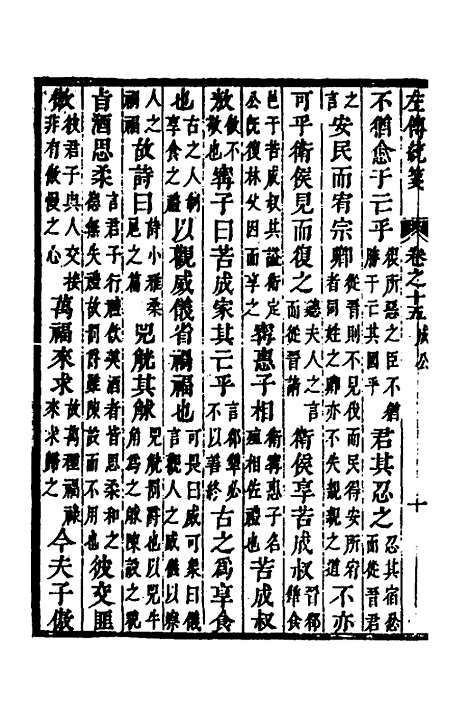 左傳統箋 卷之十五 成公 十
不猶愈于亡乎彼所惡之臣不猶勝于亡其國乎君其忍之忍其宿忿而從晉君
之言安民而宥宗卿從晉則不見伐而民得安所宥者同姓之卿亦不失親親之道不亦
可乎衛侯見而復之聽夫人之言而從晉請衛侯享苦成叔晉郤犨食
邑于苦成叔其諡衛定公既復林父因而享之甯惠子相衛甯惠子名殖相佐禮也苦成叔
敖傲不敬也甯子曰苦成家其亡乎言郤犨必不以善終古之為享食
也古之人制享食之禮以觀威儀省禍福也可畏曰威可象曰儀言觀人之威儀以察
人之禍福故詩曰詩小雅桑扈之篇兕觥其觩兕觥罰爵也以兕牛角為之觩陳設之貌
旨酒思柔言君子行禮飲美酒者皆思柔和之德無失禮故罰爵雖陳設而不用也彼交匪
傲彼君子與人交接非有傲慢之心萬福來求故萬種福祿來求歸之今夫子傲